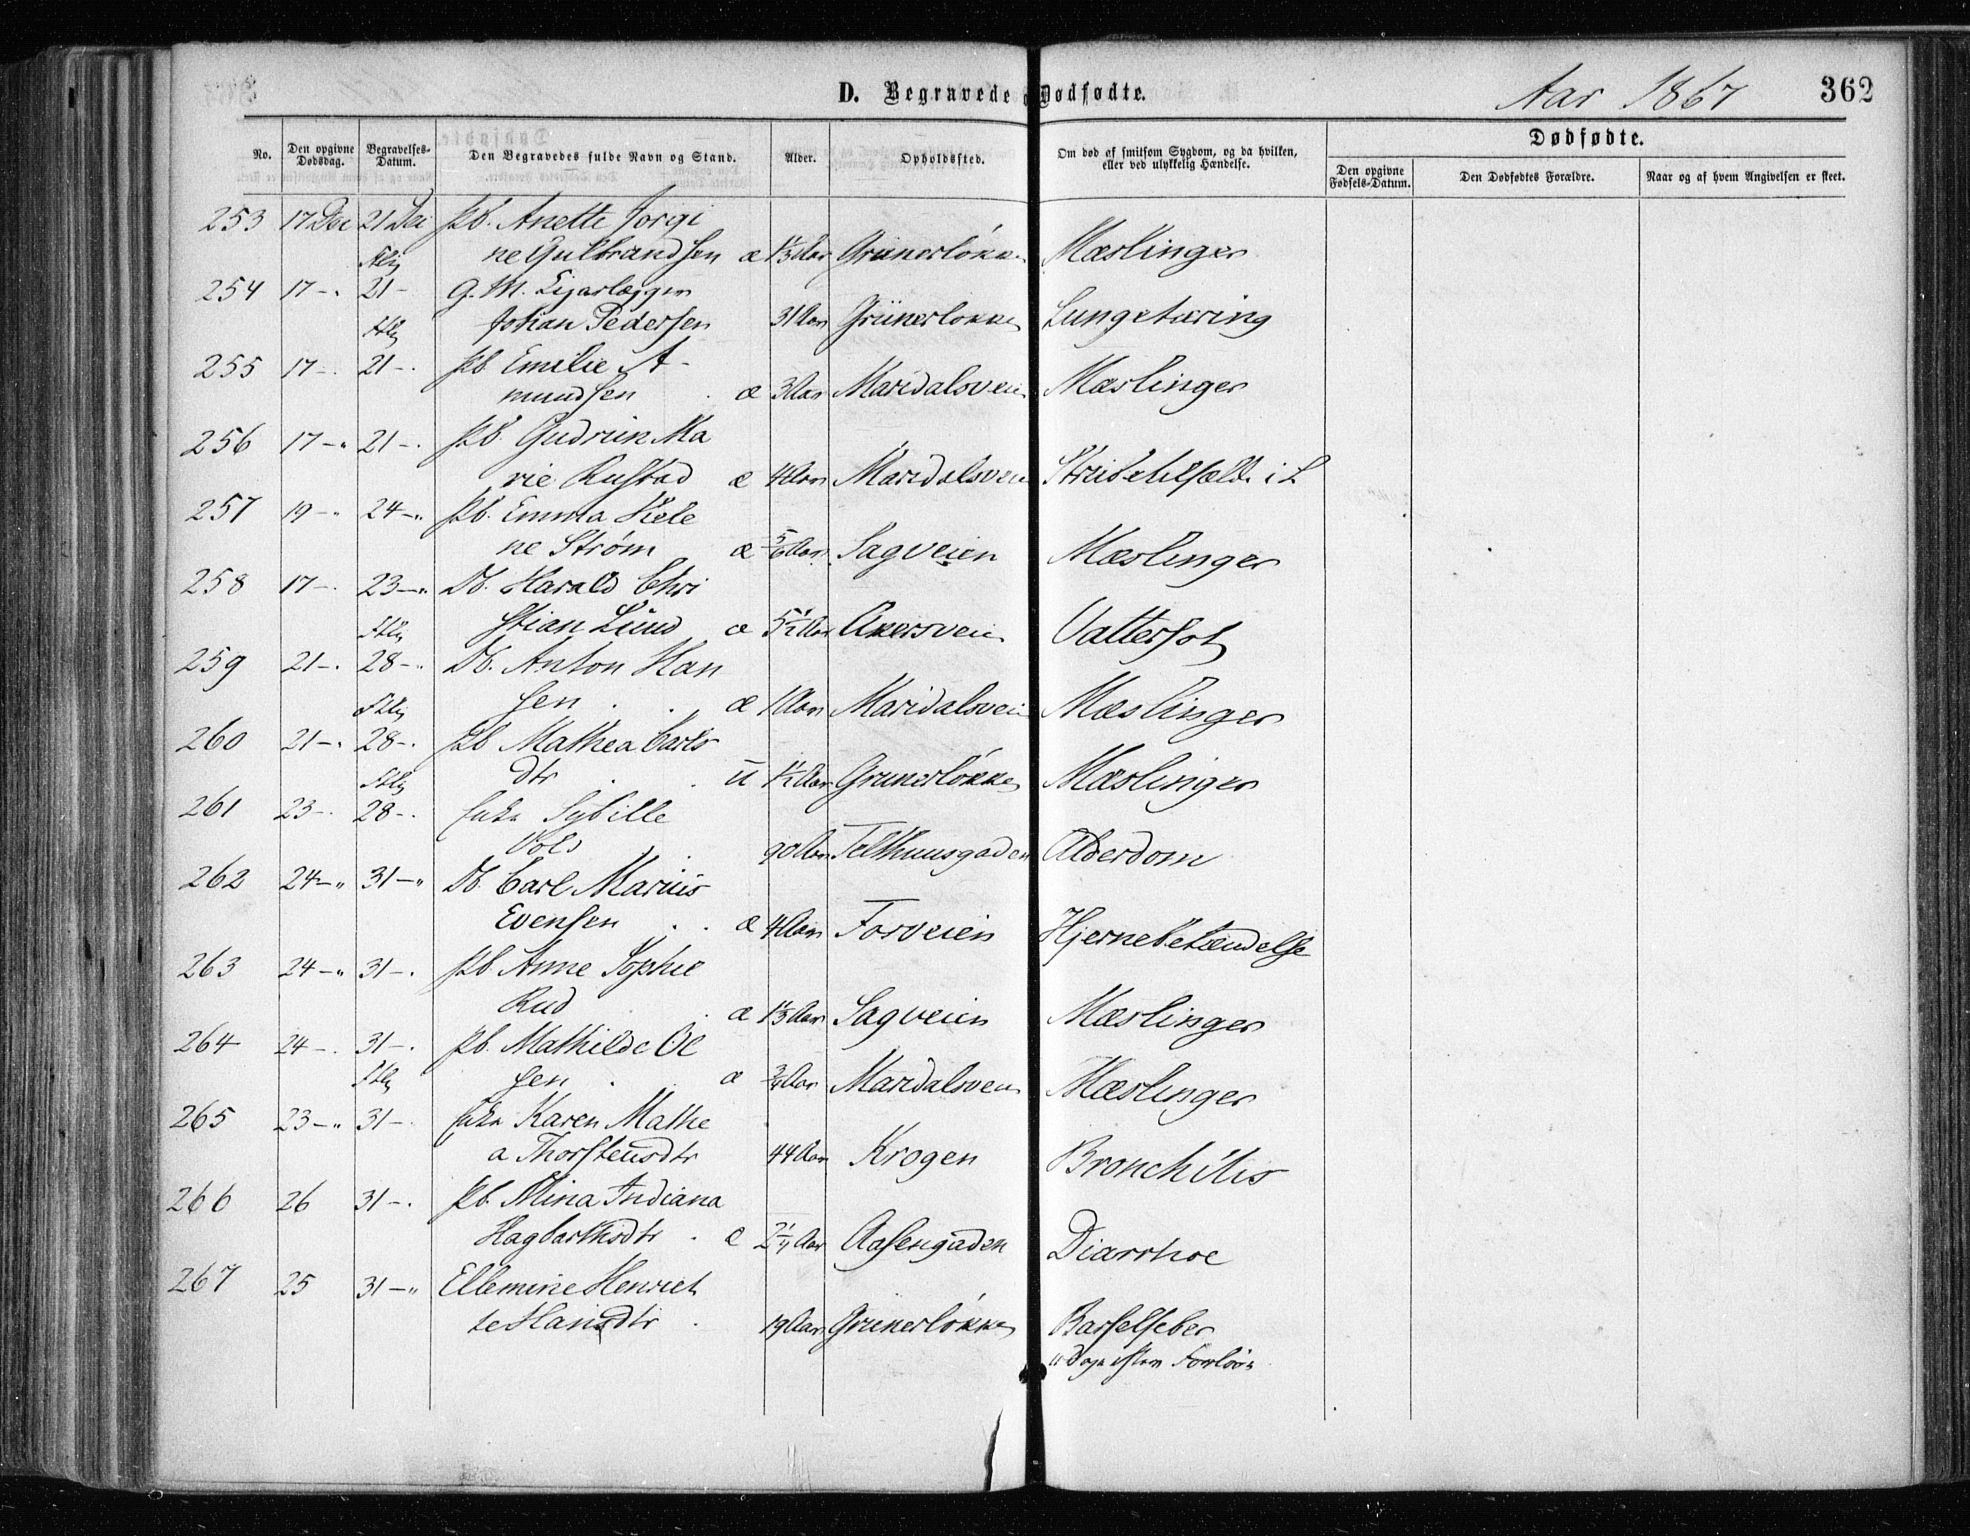 D. Begravede og Dødfødte.
Aar 1867
362
No.
Den opgivne Dødsdag.
Begravelses-Datum.
Den Begravedes fulde Navn og Stand.
Alder.
Opholdssted.
Om død af smitsom Sygdom, og da hvilken, eller ved ulykkelig Hændelse.
Dødfødte.
Den opgivne Fødsels-Datum.
Den Dødfødtes Forældre.
Naar og af hvem Angivelsen er skeet.
253 17 Dec 21 Dec Pb. Anette Jorgi
ne Gulbrandsen æ 1⅓ Aar Grünerløkke Mæslinger
254 17 -" 21 - G. M. Cigarlægger
Johan Pedersen 31 Aar Grünerløkke Lungetæring
255 17 - 21 -. Pb Emilie A-
mundsen æ 3 Aar Maridalsveien Mæslinger
256 17 -" 21 -. Pb. Gudrun Ma
rie Rustad æ 4 Aar Maridalsveien Strubetilfælde i L
257 19 -" 24 -" Pb. Emma Hele
ne Strøm æ 5/6 Aar Sagveien Mæslinger
258 17 -. 23 -" Db. Harald Chri
stian Lund æ 5½ Aar Akersveien Vattersot
259 21 -. 28 -" Db. Anton Han
sen . . æ 1 Aar Maridalsveien Mæslinger
260 21 -. 28 -. Pb Mathea Carls
dtr . . ü 1½ Aar Grunerløkke Mæslinger
261 23 -. 28 -. Enke Sybille
90 Aar Telthuusgaden Alderdom
262 24 -" 31 -" Db. Carl Marius
Evensen . . æ 4 Aar Torveien Hjernebetændelse
263 24 -" 31 -. Pb Anne Sophie
Rud . æ 1⅓ Aar Sagveien Mæslinger
264 24 -. 31 -. Pb. Mathilde Ol
sen . . æ ¾ Aar Maridalsveien Mæslinger
265 23 -" 31 -. Enke Karen Mathe
a Thorstensdtr 44 Aar Krogen Bronchitis
266 26 31 -. Pb. Mina Indiana
Hagbarthsdtr . æ 2¼ Aar Aasengaden Diarrhoe
267 25 31 -" Ellemine Henriet
te Hansdtr . 19 Aar Grünerløkke Barselfeber